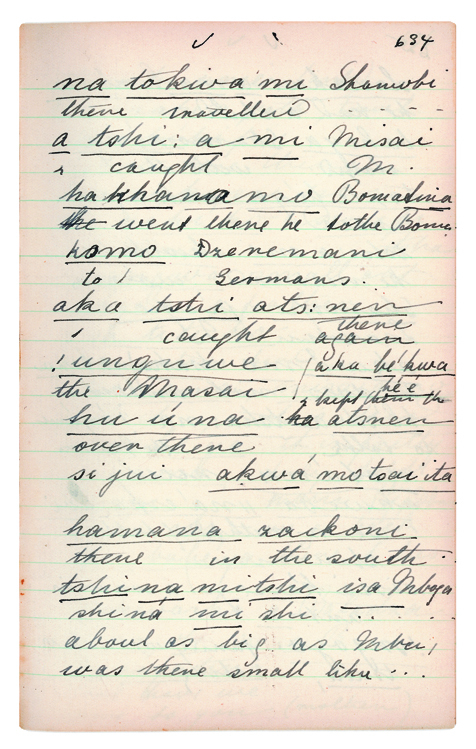 634
na tokiwa mi Shamobi
there travelled
a tshi: a mi Misai
caught M.
ha khanamo Bomadina
he went there he to the Boma
komo Dzeremani
to Germans.
aka tshi ats: nen
caught again there
! ungu we / aka be kwa
the Masai / & kept them
hu ú na ha atsnen
over there
si jui akwá mo tsai ita
hamana zaikoni
there in the south
tshina mitshi isa Mbega
shiná mi shi
about as big as Mbu,
was there small like ...